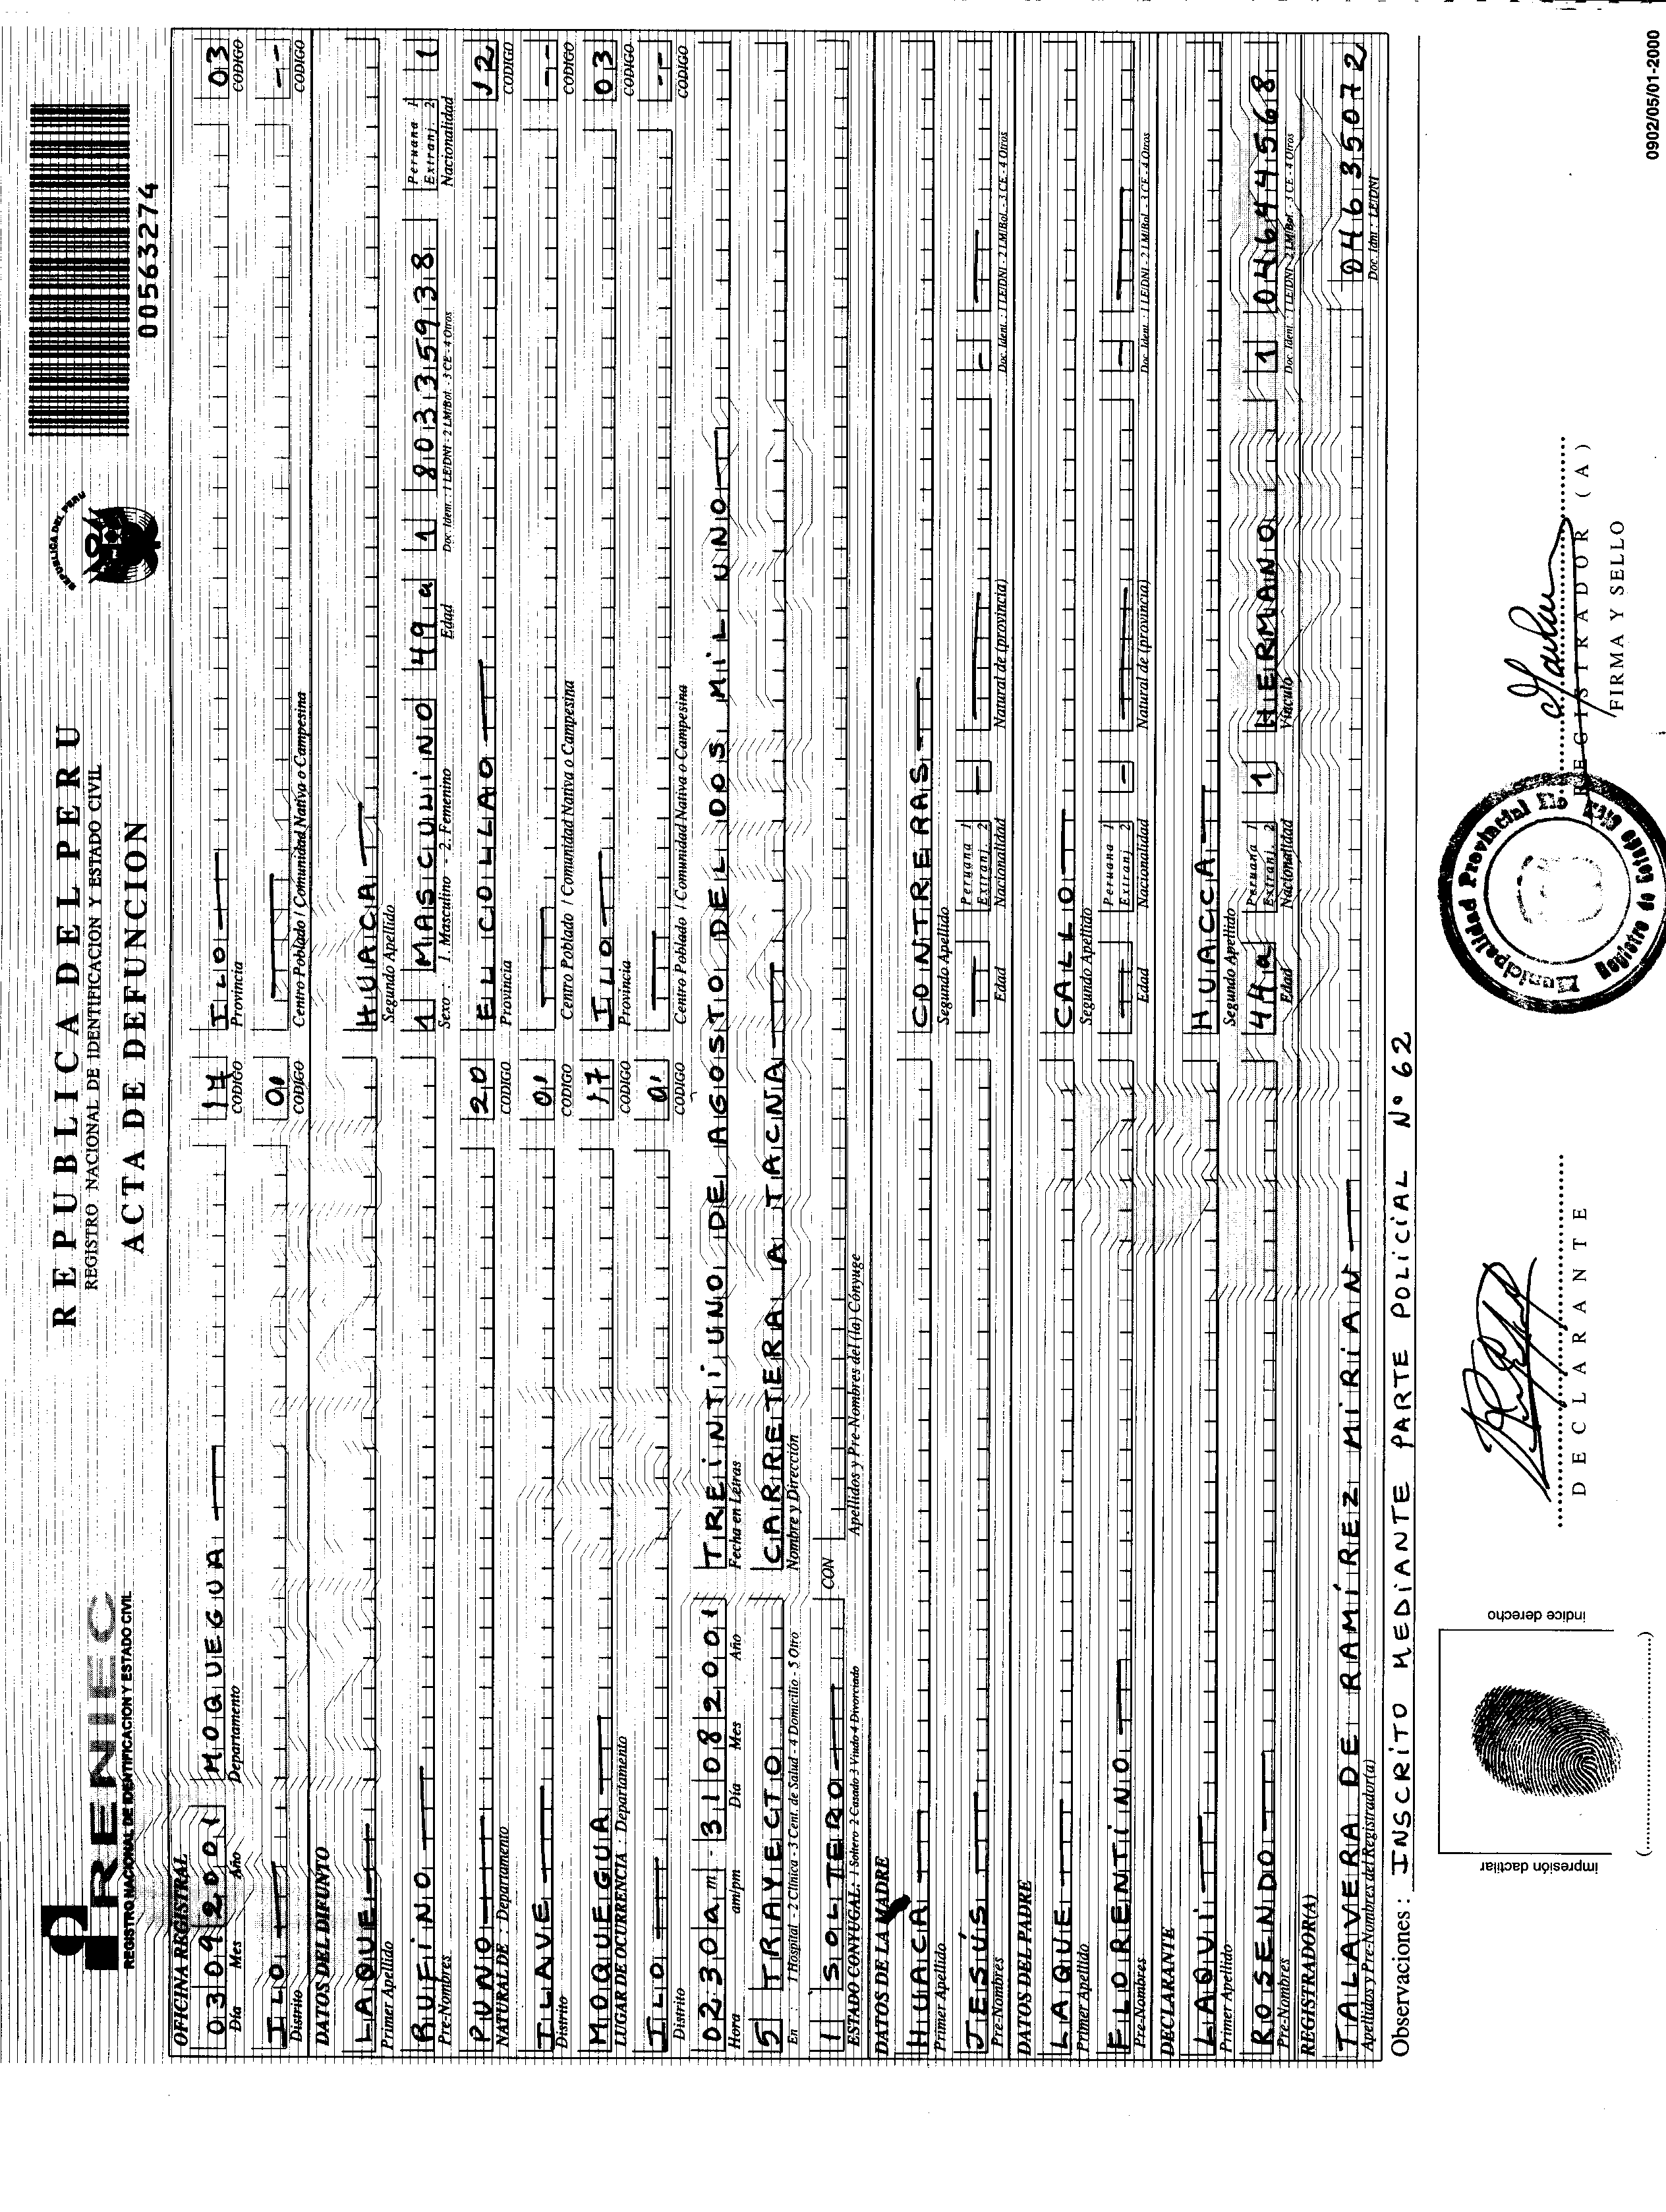 RENIEC
REGISTRO NACIONAL DE IDENTIFICACION Y ESTADO CIVIL
REPUBLICA DEL PERU
REGISTRO NACIONAL DE IDENTIFICACION Y ESTADO CIVIL
ACTA DE DEFUNCION
REPUBLICA DEL PERU
00563274
OFICINA REGISTRAL
03092001 MOQUEGUA 17 ILO 03
Día Mes Año Departamento CODIGO Provincia CODIGO
ILO 01 --
Distrito CODIGO Centro Poblado / Comunidad Nativa o Campesina CODIGO
DATOS DEL DIFUNTO
LAQUE HUACA
Primer Apellido Segundo Apellido
RUFINO 1 MASCULINO 49a 1 80335938 Peruana 1 Extranj. 2 1
Pre-Nombres Sexo : 1. Masculino - 2. Femenino Edad Doc. Ident. : 1 LE/DNI - 2 LM/Bol. - 3 CE - 4 Otros Nacionalidad
PUNO 20 EL COLLAO 12
NATURAL DE : Departamento CODIGO Provincia CODIGO
ILAVE 01 --
Distrito CODIGO Centro Poblado / Comunidad Nativa o Campesina CODIGO
MOQUEGUA 17 ILO 03
LUGAR DE OCURRENCIA : Departamento CODIGO Provincia CODIGO
ILO 01 --
Distrito CODIGO Centro Poblado / Comunidad Nativa o Campesina CODIGO
0230am- 31082001 TREINTIUNO DE AGOSTO DEL DOS MIL UNO
Hora am/pm Día Mes Año Fecha en Letras
5 TRAYECTO CARRETERA A TACNA
En : 1 Hospital - 2 Clínica - 3 Cent. de Salud - 4 Domicilio - 5 Otro Nombre y Dirección
1 SOLTERO CON
ESTADO CONYUGAL: 1 Soltero 2 Casado 3 Viudo 4 Divorciado Apellidos y Pre-Nombres del (la) Cónyuge
DATOS DE LA MADRE
HUACA CONTRERAS
Primer Apellido Segundo Apellido
JESÚS Peruana 1 Extranj. 2
Pre-Nombres Edad Nacionalidad Natural de (provincia) Doc. Ident. : 1 LE/DNI - 2 LM/Bol. - 3 CE - 4 Otros
DATOS DEL PADRE
LAQUE CALLO
Primer Apellido Segundo Apellido
FLORENTINO Peruana 1 Extranj. 2
Pre-Nombres Edad Nacionalidad Natural de (provincia) Doc. Ident. : 1 LE/DNI - 2 LM/Bol. - 3 CE - 4 Otros
DECLARANTE
LAQUI HUACCA
Primer Apellido Segundo Apellido
ROSENDO 44a Peruana 1 Extranj. 2 1 HERMANO 1 04644568
Pre-Nombres Edad Nacionalidad Vínculo Doc. Ident. : 1 LE/DNI - 2 LM/Bol. - 3 CE - 4 Otros
REGISTRADOR(A)
TALAVERA DE RAMÍREZ MIRIAN 04635072
Apellidos y Pre-Nombres del Registrador(a) Doc. Idnt : LE/DNI
Observaciones : INSCRITO MEDIANTE PARTE POLICIAL N° 62
impresión dactilar
índice derecho
DECLARANTE
Municipalidad Provincial Ilo
REGISTRADOR (A)
FIRMA Y SELLO
0902/05/01-2000